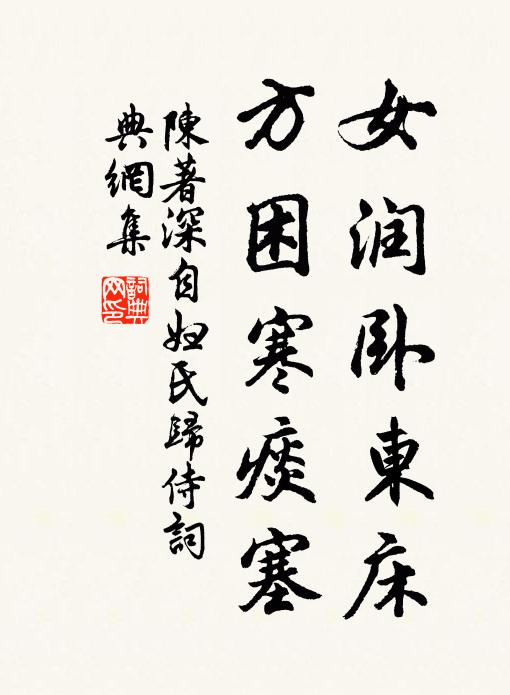 女润卧東床
方困寒痰塞
陳著深自妲氏歸侍詞
典網集
詞典網印